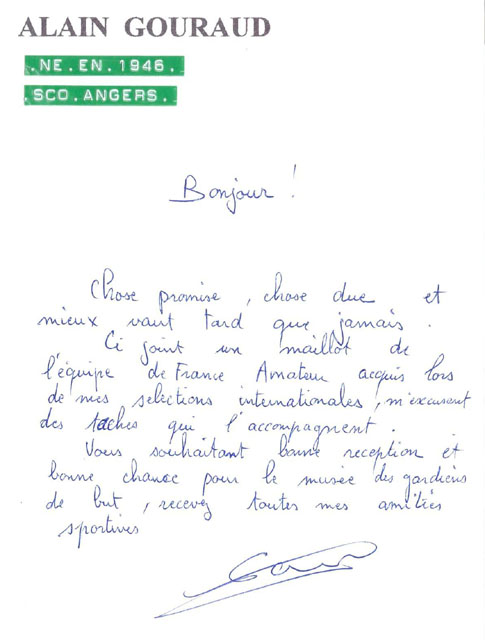 ALAIN GOURAUD
.NE.EN.1946.
.SCO.ANGERS.
Bonjour !
Chose promise, chose due et
mieux vaut tard que jamais.
Ci joint un maillot de
l'équipe de France Amateur acquis lors
de mes selections internationales, m'excusant
des taches qui l'accompagnent.
Vous souhaitant bonne reception et
bonne chance pour le musée des gardiens
de but, recevez toutes mes amitiés
sportives